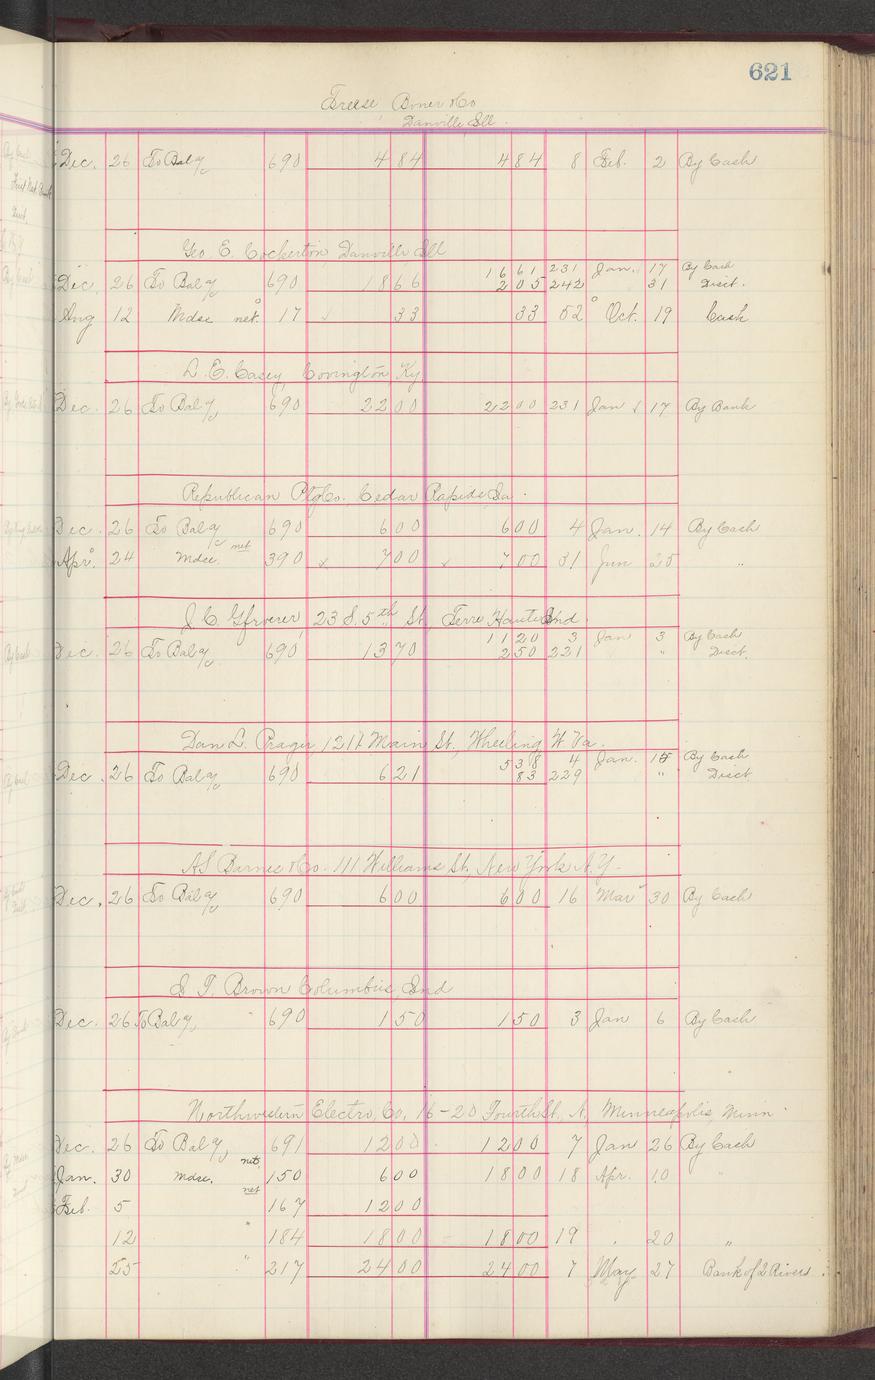 621
Freese Boner & Co
Danville Ill.
Dec. 26 To Bal a/c 690 4 84 4 84 8 Feb. 2 By Cash
Geo. E. Cockerton Danville Ill
16 61 231 Jan. 17 By Cash
Dec. 26 To Bal a/c 690 18 66 2 05 242 31 Disct.
Aug 12 Mdse net. 17 33 33 52 Oct. 19 Cash
L. E. Casey, Covington, Ky.
Dec. 26 To Bal a/c 690 22 00 22 00 231 Jan 17 By Bank
Republican Ptg Co. Cedar Rapids Ia.
Dec. 26 To Bal a/c 690 6 00 6 00 4 Jan. 14 By Cash
Apr. 24 Mdse. net 390 7 00 7 00 31 Jun 25 "
J. C. Gfroerer, 23 S. 5th St., Terre Haute Ind.
11 20 3 Jan 3 By Cash
Dec. 26 To Bal a/c 690 13 70 2 50 221 " Disct.
Dan L. Prager, 1217 Main St., Wheeling W. Va.
5 38 4 Jan. 15 By Cash
Dec. 26 To Bal a/c 690 6 21 83 229 " Disct
AS Barnes & Co. 111 Williams St., New York N.Y.
Dec. 26 To Bal a/c 690 6 00 6 00 16 Mar 30 By Cash
S. T. Brown Columbus, Ind
Dec. 26 To Bal a/c 690 1 50 1 50 3 Jan 6 By Cash
Northwestern Electro. Co. 16-20 Fourth St., N. Minneapolis, Minn.
Dec. 26 To Bal a/c 691 12 00 12 00 7 Jan 26 By Cash
Jan. 30 Mdse. net 150 6 00 18 00 18 Apr. 10 "
Feb. 5 net 167 12 00
12 " 184 18 00 18 00 19 . 20 "
25 " 217 24 00 24 00 7 May 27 Bank of 2 Rivers